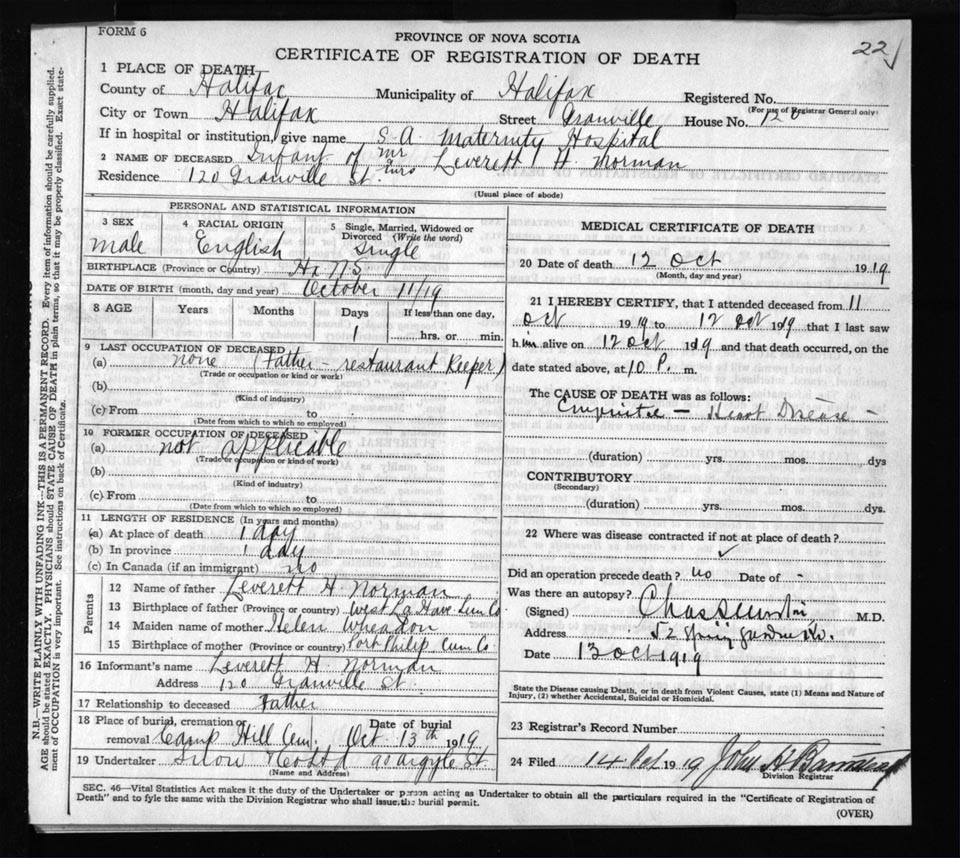 FORM 6
PROVINCE OF NOVA SCOTIA
22
CERTIFICATE OF REGISTRATION OF DEATH
1 PLACE OF DEATH—
County of Halifax Municipality of Halifax Registered No.
(For use of Registrar General only)
City or Town Halifax Street Granville House No. 120
If in hospital or institution, give name S.A. Maternity Hospital
2 NAME OF DECEASED Infant of Mr Mrs Leverett H. Norman
Residence 120 Granville St.
(Usual place of abode)
PERSONAL AND STATISTICAL INFORMATION
3 SEX 4 RACIAL ORIGIN 5 Single, Married, Widowed or Divorced (Write the word)
Male English Single
BIRTHPLACE (Province or Country) Hx N S
DATE OF BIRTH (month, day and year) October 11/19
8 AGE Years Months Days If less than one day,
1 hrs. or min.
9 LAST OCCUPATION OF DECEASED
(a) none (Father - restaurant Keeper)
(Trade or occupation or kind or work)
(b)
(Kind of industry)
(c) From to
(Date from which to which so employed)
10 FORMER OCCUPATION OF DECEASED
(a) not applicable
(Trade or occupation or kind of work)
(b)
(Kind of industry)
(c) From to
(Date from which to which so employed)
11 LENGTH OF RESIDENCE (In years and months)
(a) At place of death 1 day
(b) In province 1 day
(c) In Canada (if an immigrant) no
Parents
12 Name of father Leverett H. Norman
13 Birthplace of father (Province or country) West La Have Lun Co.
14 Maiden name of mother Helen Wheadon
15 Birthplace of mother (Province or country) Port Philip Cum Co.
16 Informant's name Leverett H. Norman
Address 120 Granville St.
17 Relationship to deceased Father
18 Place of burial, cremation or removal Camp Hill Cem. Date of burial Oct. 13th 1919
19 Undertaker Snow & Co Ltd 90 Argyle St
(Name and Address)
MEDICAL CERTIFICATE OF DEATH
20 Date of death 12 Oct 1919
(Month, day and year)
21 I HEREBY CERTIFY, that I attended deceased from 11
Oct 1919 to 12 Oct 1919 that I last saw
him alive on 12 Oct 1919 and that death occurred, on the
date stated above, at 10 P. m.
The CAUSE OF DEATH was as follows:
Heart Disease -
(duration) yrs. mos. dys
CONTRIBUTORY
(Secondary)
(duration) yrs. mos. dys.
22 Where was disease contracted if not at place of death?
✓
Did an operation precede death? no Date of -
Was there an autopsy?
(Signed) M.D.
Address 52 Spring Garden Rd.
Date 13 Oct 1919
State the Disease causing Death, or in death from Violent Causes, state (1) Means and Nature of
Injury, (2) whether Accidental, Suicidal or Homicidal.
23 Registrar's Record Number
24 Filed 14 Oct 1919 John A Barnstead
Division Registrar
SEC. 46—Vital Statistics Act makes it the duty of the Undertaker or person acting as Undertaker to obtain all the particulars required in the "Certificate of Registration of
Death" and to fyle the same with the Division Registrar who shall issue the burial permit.
(OVER)
N.B.—WRITE PLAINLY WITH UNFADING INK—THIS IS A PERMANENT RECORD. Every item of information should be carefully supplied.
AGE should be stated EXACTLY. PHYSICIANS should STATE CAUSE OF DEATH in plain terms, so that it may be properly classified. Exact state-
ment of OCCUPATION is very important. See instructions on back of Certificate.